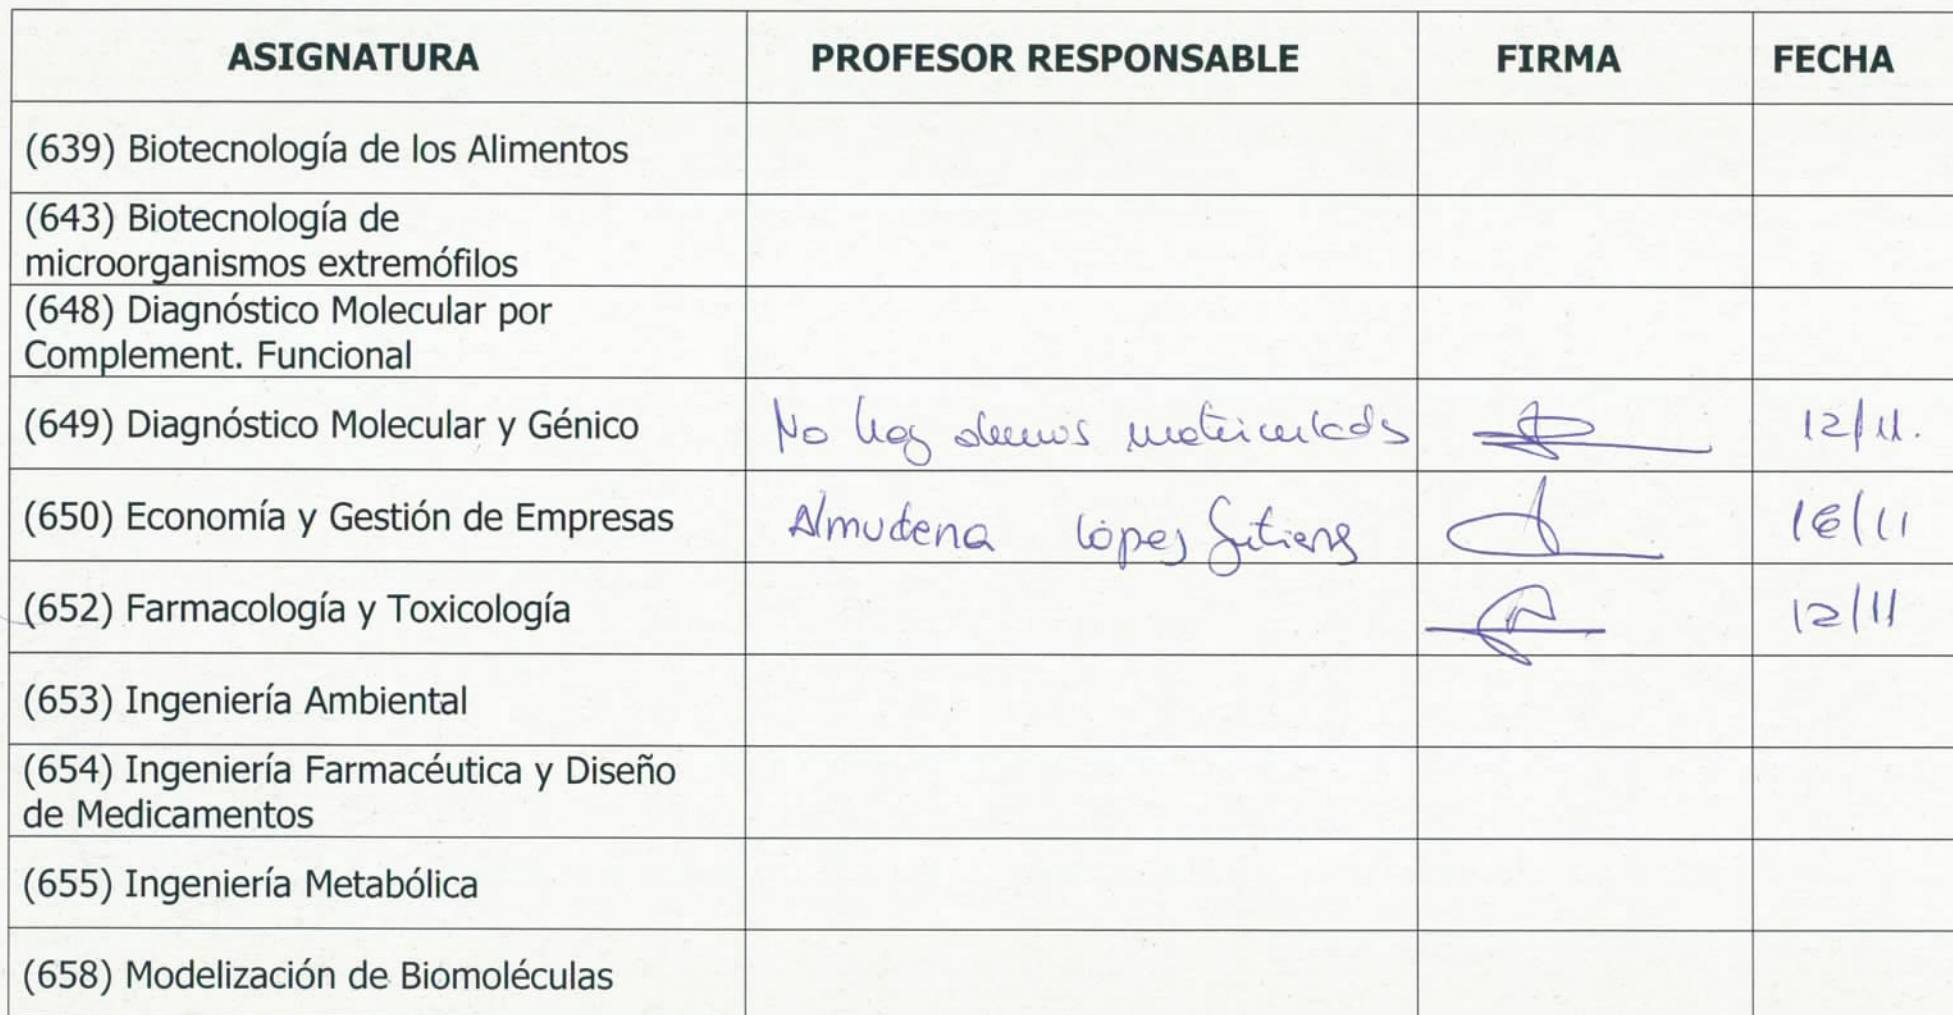 ASIGNATURA PROFESOR RESPONSABLE FIRMA FECHA
(639) Biotecnología de los Alimentos
(643) Biotecnología de
microorganismos extremófilos
(648) Diagnóstico Molecular por
Complement. Funcional
(649) Diagnóstico Molecular y Génico No hay alumnos matriculados 12/11.
(650) Economía y Gestión de Empresas Almudena López 16/11
(652) Farmacología y Toxicología 12/11
(653) Ingeniería Ambiental
(654) Ingeniería Farmacéutica y Diseño
de Medicamentos
(655) Ingeniería Metabólica
(658) Modelización de Biomoléculas